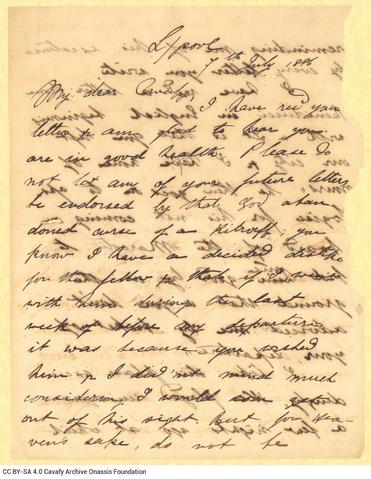 L/pool
7th July 1886
My dear Cavafy
I have recd your
letter & am glad to hear you
are in good health. Please do
not let any of your future letters
be endorsed by that God aban
doned curse of a Kilroff. you
know I have a decided dislike
for that fellow & that if I went
with him during the last
week of before my departure
it was because you wished
him & I did not mind much
considering I would soon
out of his sight But for Hea-
ven's sake, do not be
CC BY-SA 4.0 Cavafy Archive Onassis Foundation